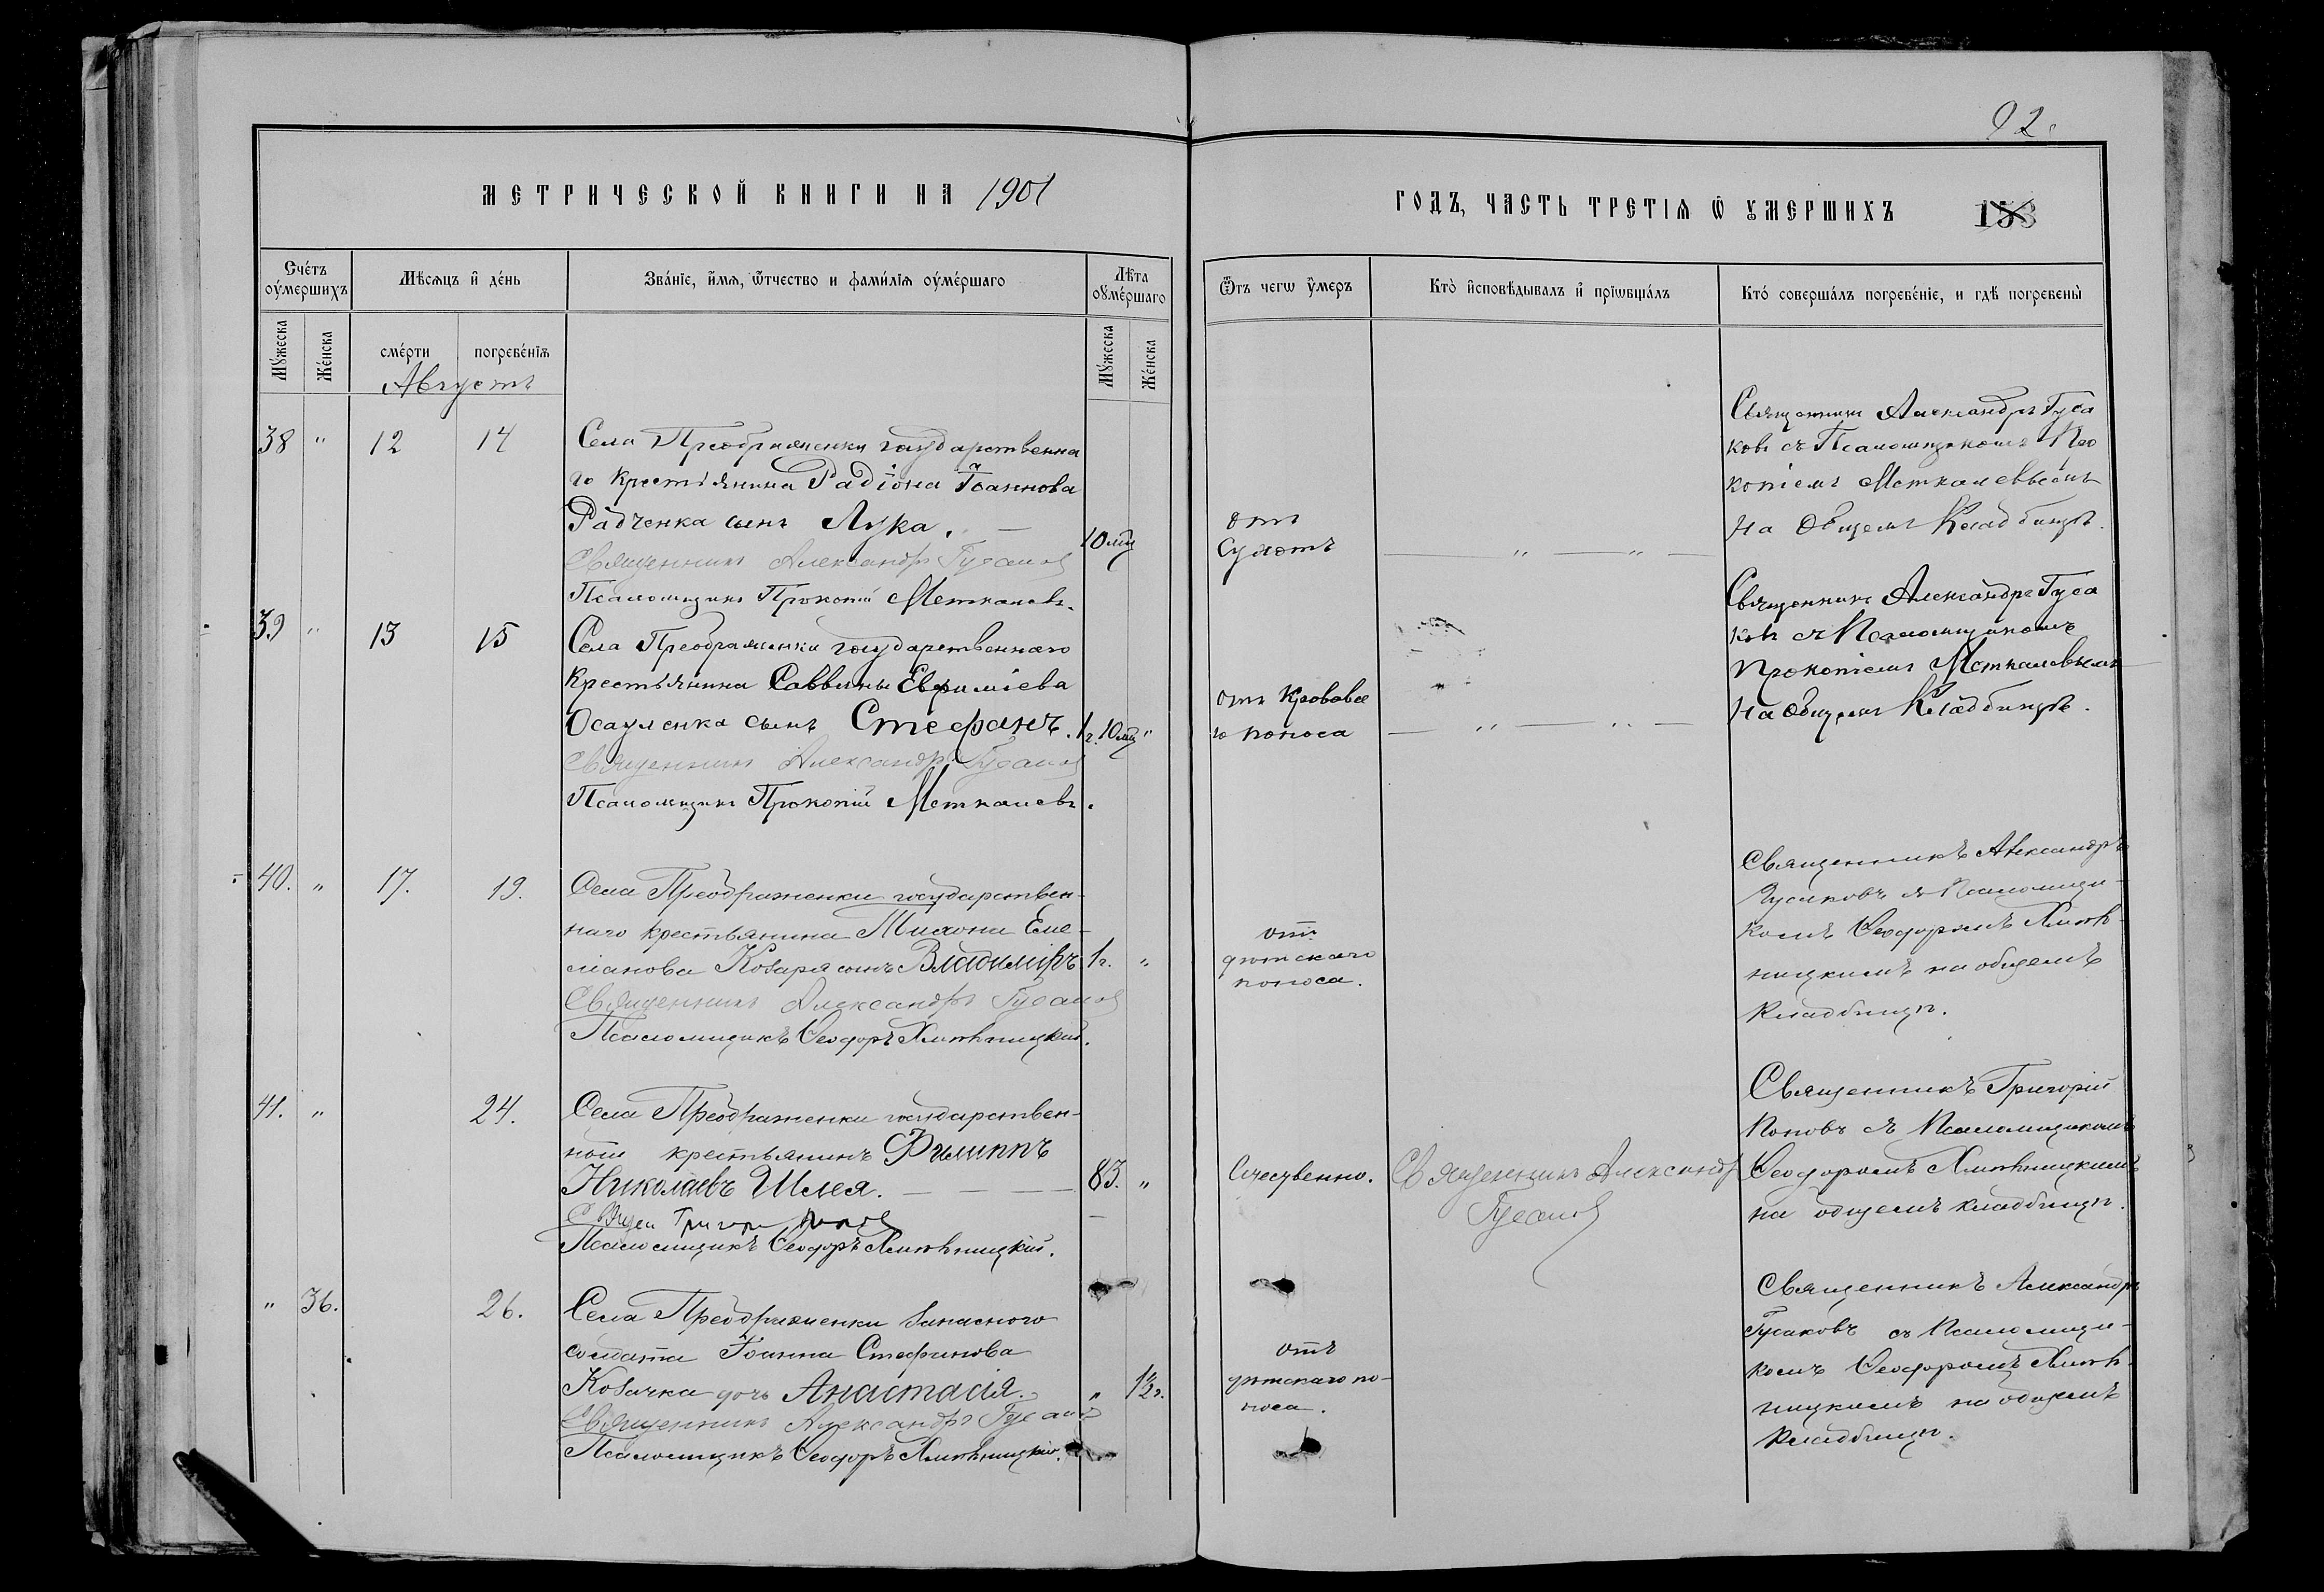 92.
МЕТРИЧЕСКОЙ КНИГИ НА 1901
ГОДЪ, ЧАСТЬ ТРЕТІѦ Ѿ ꙊМЕРШИХЪ
153
Сче́тъ оу́мершихъ
Мѣсѧцъ и҆ де́нь
Зва́нїе, и҆́мѧ, ѿтчество и фами́лїѧ оу́ме́ршаго
Лѣ́та оу҆ме́ршаго
Ѿтъ чегѡ у҆меръ
Кто̀ и҆сповѣ́дывалъ и҆ прїѡбща́лъ
Кто́ соверша́лъ погребе́нїе, и гдѣ̀ погребены̀
Мꙋ́жеска
Же́нска
сме́рти
погребе́нїѧ
Мꙋ́жеска
Же́нска
Августъ
38 " 12 14
Села Преображенки государственна
го крестьянина Радіона Іоаннова
Радченка сынъ Лука.
10 мц
Священникъ Александръ Гусаковъ
Псаломщикъ Прокопій Меткалевъ.
отъ
Сухотъ
Священникъ Александръ Гуса
ковъ съ Псаломщикомъ Про
копіемъ Меткалевымъ
на Общемъ Кладбищѣ.
39 " 13 15
Села Преображенки государственнаго
крестьянина Саввины Евфиміева
Осауленка сынъ Стефанъ.
1 г. 10 мц "
Священникъ Александръ Гусаковъ
Псаломщикъ Прокопій Меткалевъ.
отъ Кроваваго
го поноса
Священникъ Александръ Гуса
ковъ съ Псаломщикомъ
Прокопіемъ Меткалевымъ
На Общемъ Кладбищѣ.
40. " 17. 19.
Села Преображенки государствен-
наго крестьянина Тихона Еме-
ліанова Козаря сынъ Владиміръ
1 г. "
Священникъ Александръ Гусаковъ
Псаломщикъ Ѳеодоръ Хмѣльницкій.
отъ
дѣтскаго
поноса.
Священникъ Александръ
Гусаковъ съ Псаломщи-
комъ Ѳеодоромъ Хмѣль-
ницкимъ на общемъ
Кладбищѣ.
41. " 24.
Села Преображенки государствен-
ной крестьянинъ Филиппъ
Николаевъ Шлея.
83. "
Священ Григори Попов
Псаломщикъ Ѳеодоръ Хмѣльницкій.
Естественно.
Священникъ Александръ
Гусаковъ
Священникъ Григорій
Поповъ съ Псаломщикомъ
Ѳеодоромъ Хмѣльницкимъ
на общемъ кладбищѣ.
" 36. 26.
Села Преображенки запасного
солдата Іоанна Стефанова
Козачка дочь Анастасія.
" 1½ г.
Священникъ Александръ Гусаковъ
Псаломщикъ Ѳеодоръ Хмѣльницкій.
отъ
дѣтскаго по-
носа.
Священникъ Александръ
Гусаковъ съ Псаломщи-
комъ Ѳеодоромъ Хмѣль-
ницкимъ на общемъ
Кладбищѣ.